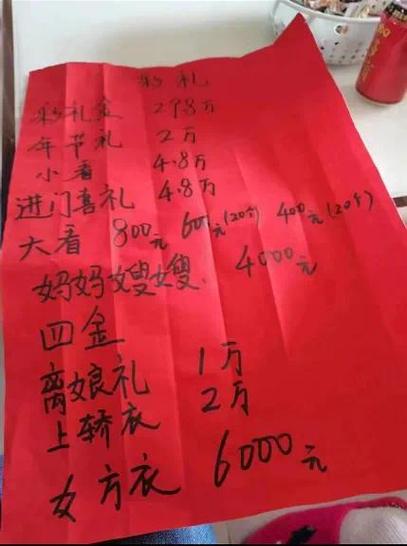 彩礼
彩礼金 29.8万
年节礼 2万
小看 4.8万
进门喜礼 4.8万
大看 800元 600元(20个) 400元(20个)
妈妈嫂嫂. 4000元
四金
离娘礼 1万
上轿衣 2万
女方衣 6000元